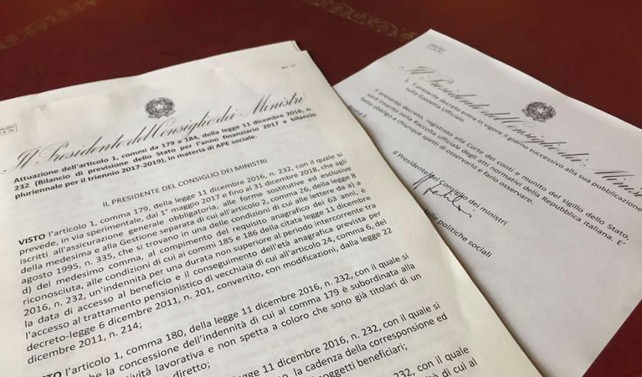 Il Presidente del Consiglio dei Ministri
Attuazione dell'articolo 1, commi da 179 a 184, della legge 11 dicembre 2016, n.
232 (Bilancio di previsione dello Stato per l'anno finanziario 2017 e bilancio
pluriennale per il triennio 2017-2019), in materia di APE sociale.
IL PRESIDENTE DEL CONSIGLIO DEI MINISTRI
VISTO l'articolo 1, comma 179, della legge 11 dicembre 2016, n. 232, con il quale si
prevede, in via sperimentale, dal 1° maggio 2017 e fino al 31 dicembre 2018, che agli
iscritti all'assicurazione generale obbligatoria, alle forme sostitutive ed esclusive
della medesima e alla Gestione separata di cui all'articolo 2, comma 26, della legge 8
agosto 1995, n. 335, che si trovano in una delle condizioni di cui alle lettere da a) a
d) del medesimo comma, al compimento del requisito anagrafico dei 63 anni, è
riconosciuta, alle condizioni di cui ai commi 185 e 186 della citata legge 11 dicembre
2016, n. 232, un'indennità per una durata non superiore al periodo intercorrente tra
la data di accesso al beneficio e il conseguimento dell'età anagrafica prevista per
l'accesso al trattamento pensionistico di vecchiaia di cui all'articolo 24, comma 6, del
decreto-legge 6 dicembre 2011, n. 201, convertito, con modificazioni, dalla legge 22
dicembre 2011, n. 214;
VISTO l'articolo 1, comma 180, della legge 11 dicembre 2016, n. 232, con il quale si
che la concessione dell'indennità di cui al comma 179 è subordinata alla
attività lavorativa e non spetta a coloro che sono già titolari di un
diretto;
legge 11 dicembre 2016, n. 232, con il quale si
la cadenza della corresponsione ed
soggetti beneficiari;
Il Presidente del Consiglio dei Ministri
Il presente decreto entra in vigore il giorno successivo alla sua pubblicazione
sulla Gazzetta Ufficiale.
Il presente decreto, registrato alla Corte dei conti e munito del sigillo dello Stato,
è inserito nella Raccolta ufficiale degli atti normativi della Repubblica italiana. E'
fatto obbligo a chiunque spetti di osservarlo e farlo osservare.
Il Presidente del consiglio dei ministri
politiche sociali